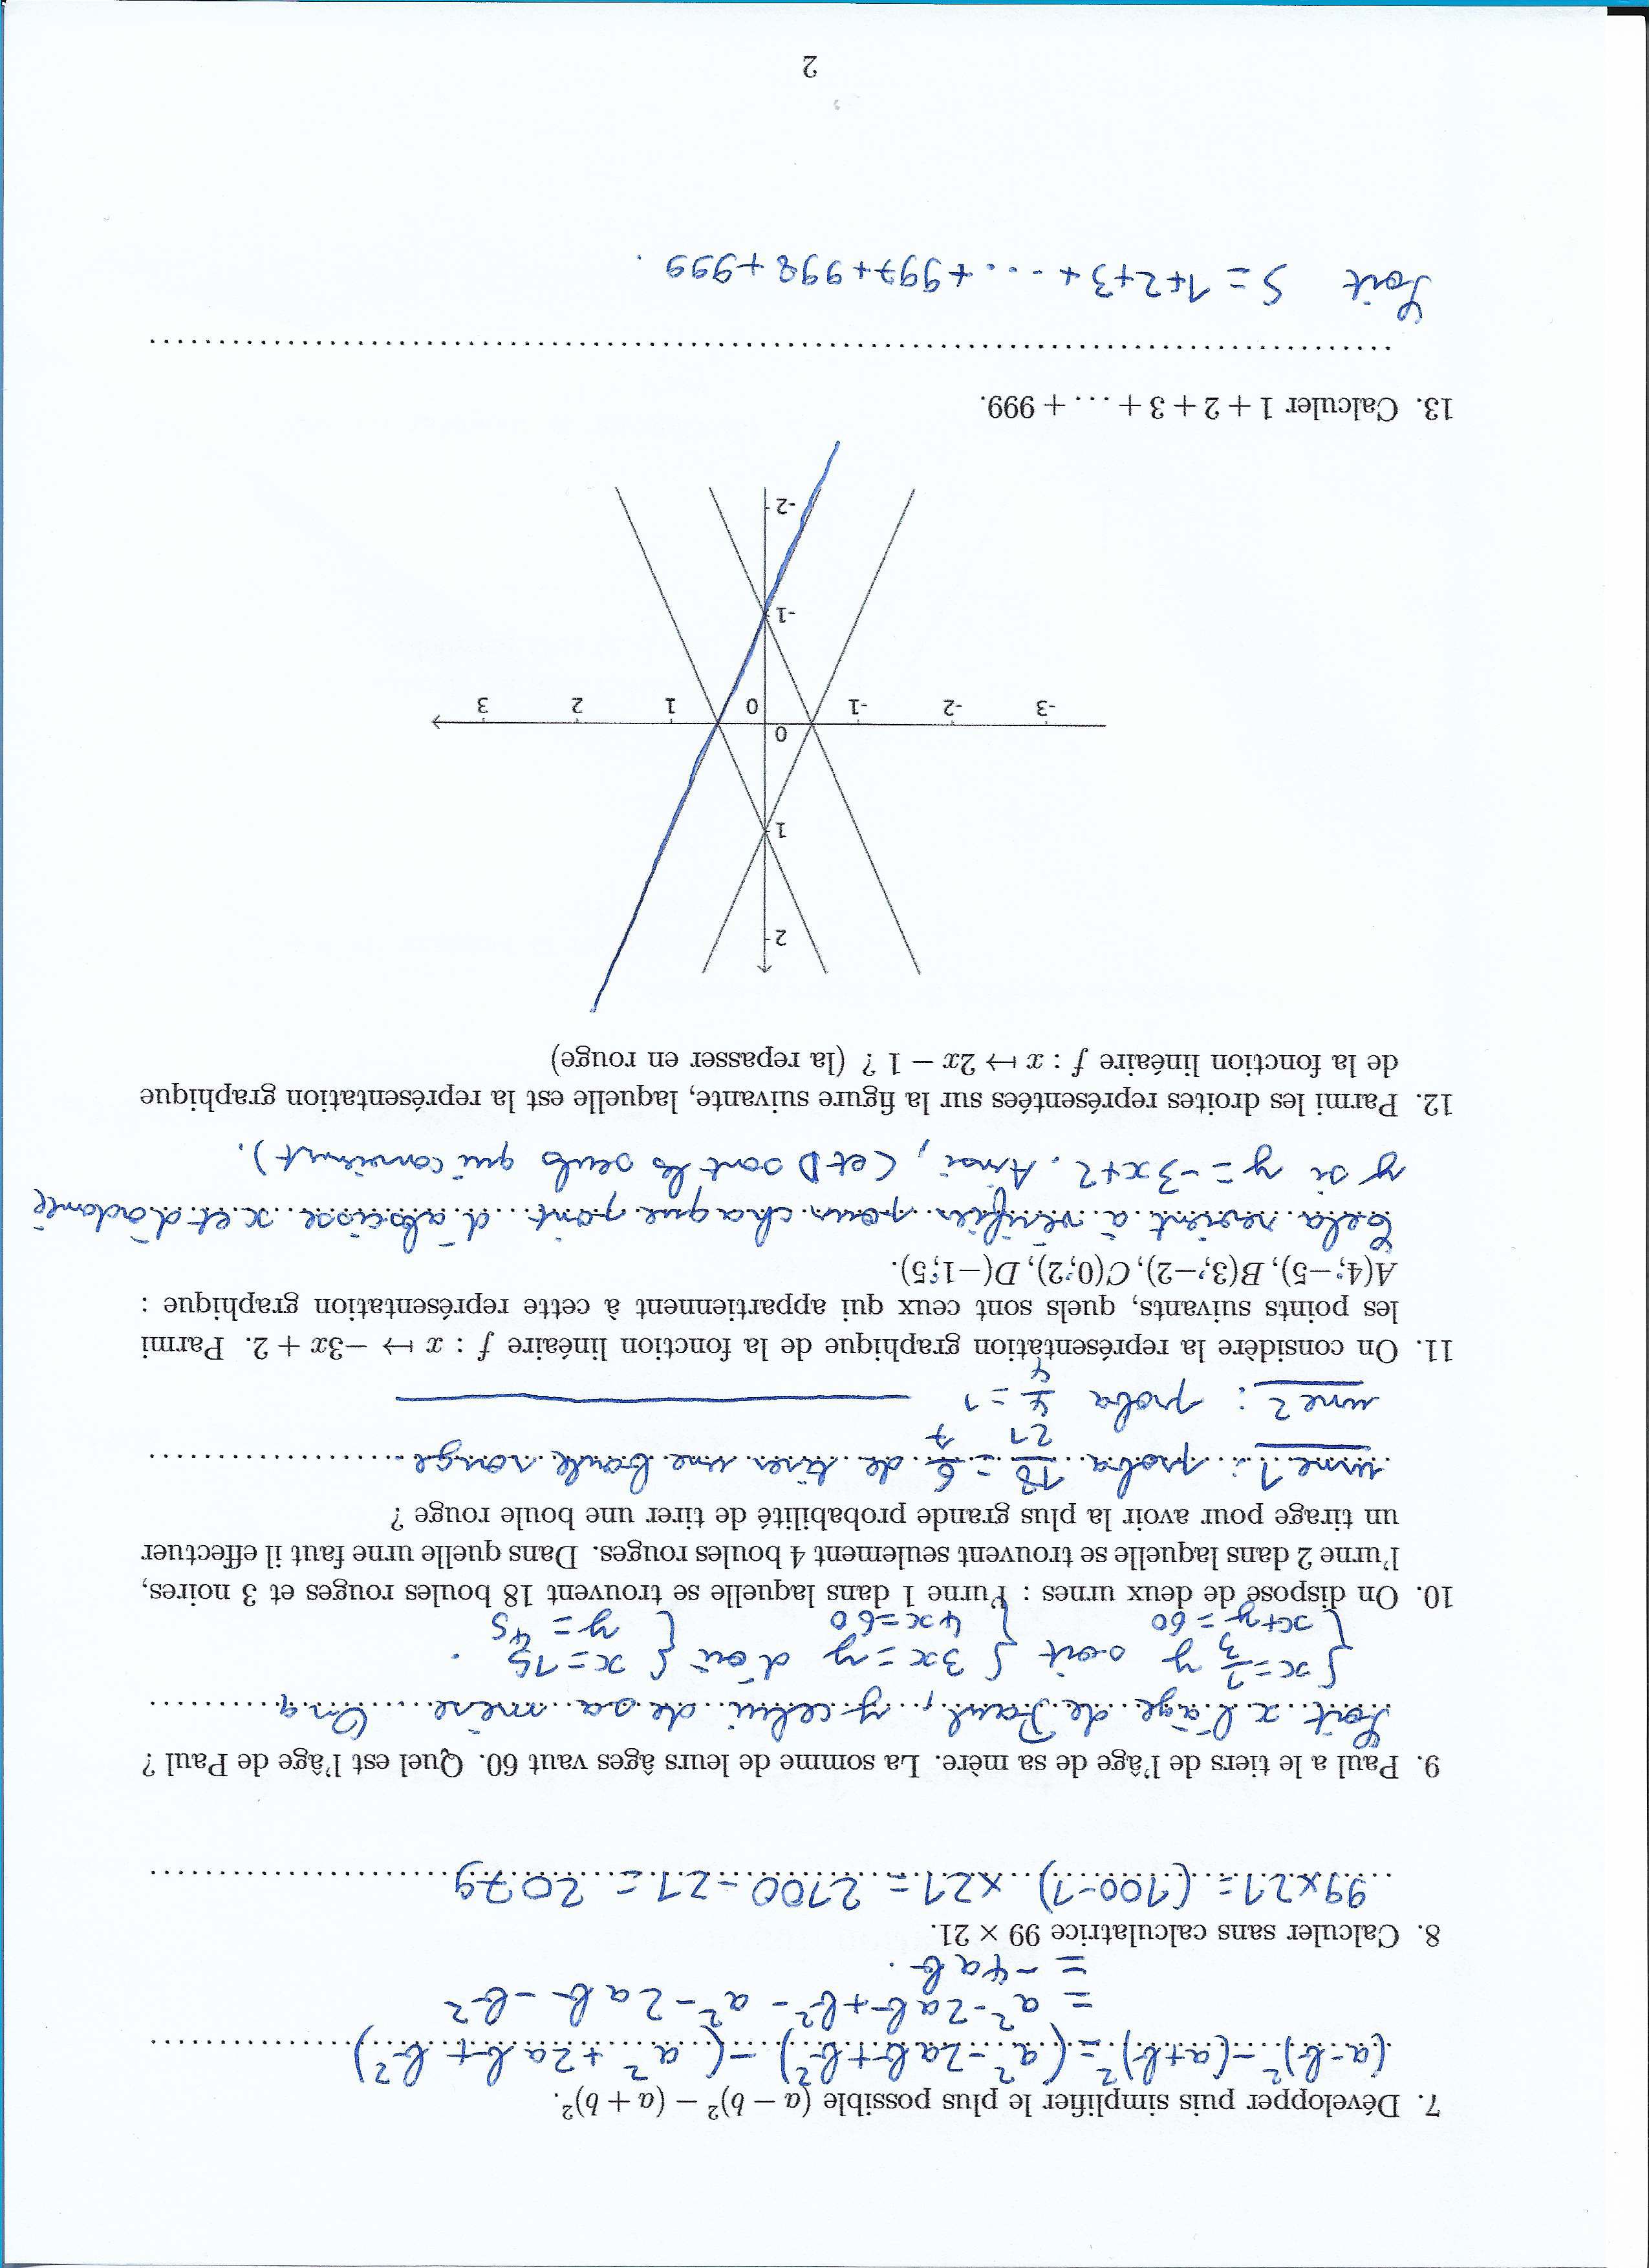 7. Développer puis simplifier le plus possible (a − b)² − (a + b)².
(a-b)² - (a+b)² = (a² - 2ab + b²) - (a² + 2ab + b²)
= a² - 2ab + b² - a² - 2ab - b²
= -4ab.
8. Calculer sans calculatrice 99 × 21.
99×21 = (100-1) × 21 = 2100 - 21 = 2079
9. Paul a le tiers de l'âge de sa mère. La somme de leurs âges vaut 60. Quel est l'âge de Paul ?
Soit x l'âge de Paul, y celui de sa mère. On a
{ x = 1/3 y soit { 3x = y d'où { x = 15 .
{ x+y = 60 { 4x = 60 { y = 45
10. On dispose de deux urnes : l'urne 1 dans laquelle se trouvent 18 boules rouges et 3 noires,
l'urne 2 dans laquelle se trouvent seulement 4 boules rouges. Dans quelle urne faut il effectuer
un tirage pour avoir la plus grande probabilité de tirer une boule rouge ?
urne 1 : proba 18/21 = 6/7 de tirer une boule rouge
urne 2 : proba 4/4 = 1
11. On considère la représentation graphique de la fonction linéaire f : x ↦ −3x + 2. Parmi
les points suivants, quels sont ceux qui appartiennent à cette représentation graphique :
A(4; −5), B(3; −2), C(0; 2), D(−1; 5).
Cela revient à vérifier pour chaque point d'abscisse x et d'ordonnée
y si y = -3x+2. Ainsi, C et D sont les seuls qui conviennent).
12. Parmi les droites représentées sur la figure suivante, laquelle est la représentation graphique
de la fonction linéaire f : x ↦ 2x − 1 ? (la repasser en rouge)
2
1
0
-3 -2 -1 0 1 2 3
-1
-2
13. Calculer 1 + 2 + 3 + . . . + 999.
Soit S = 1+2+3+ .... +997+998+999 .
2